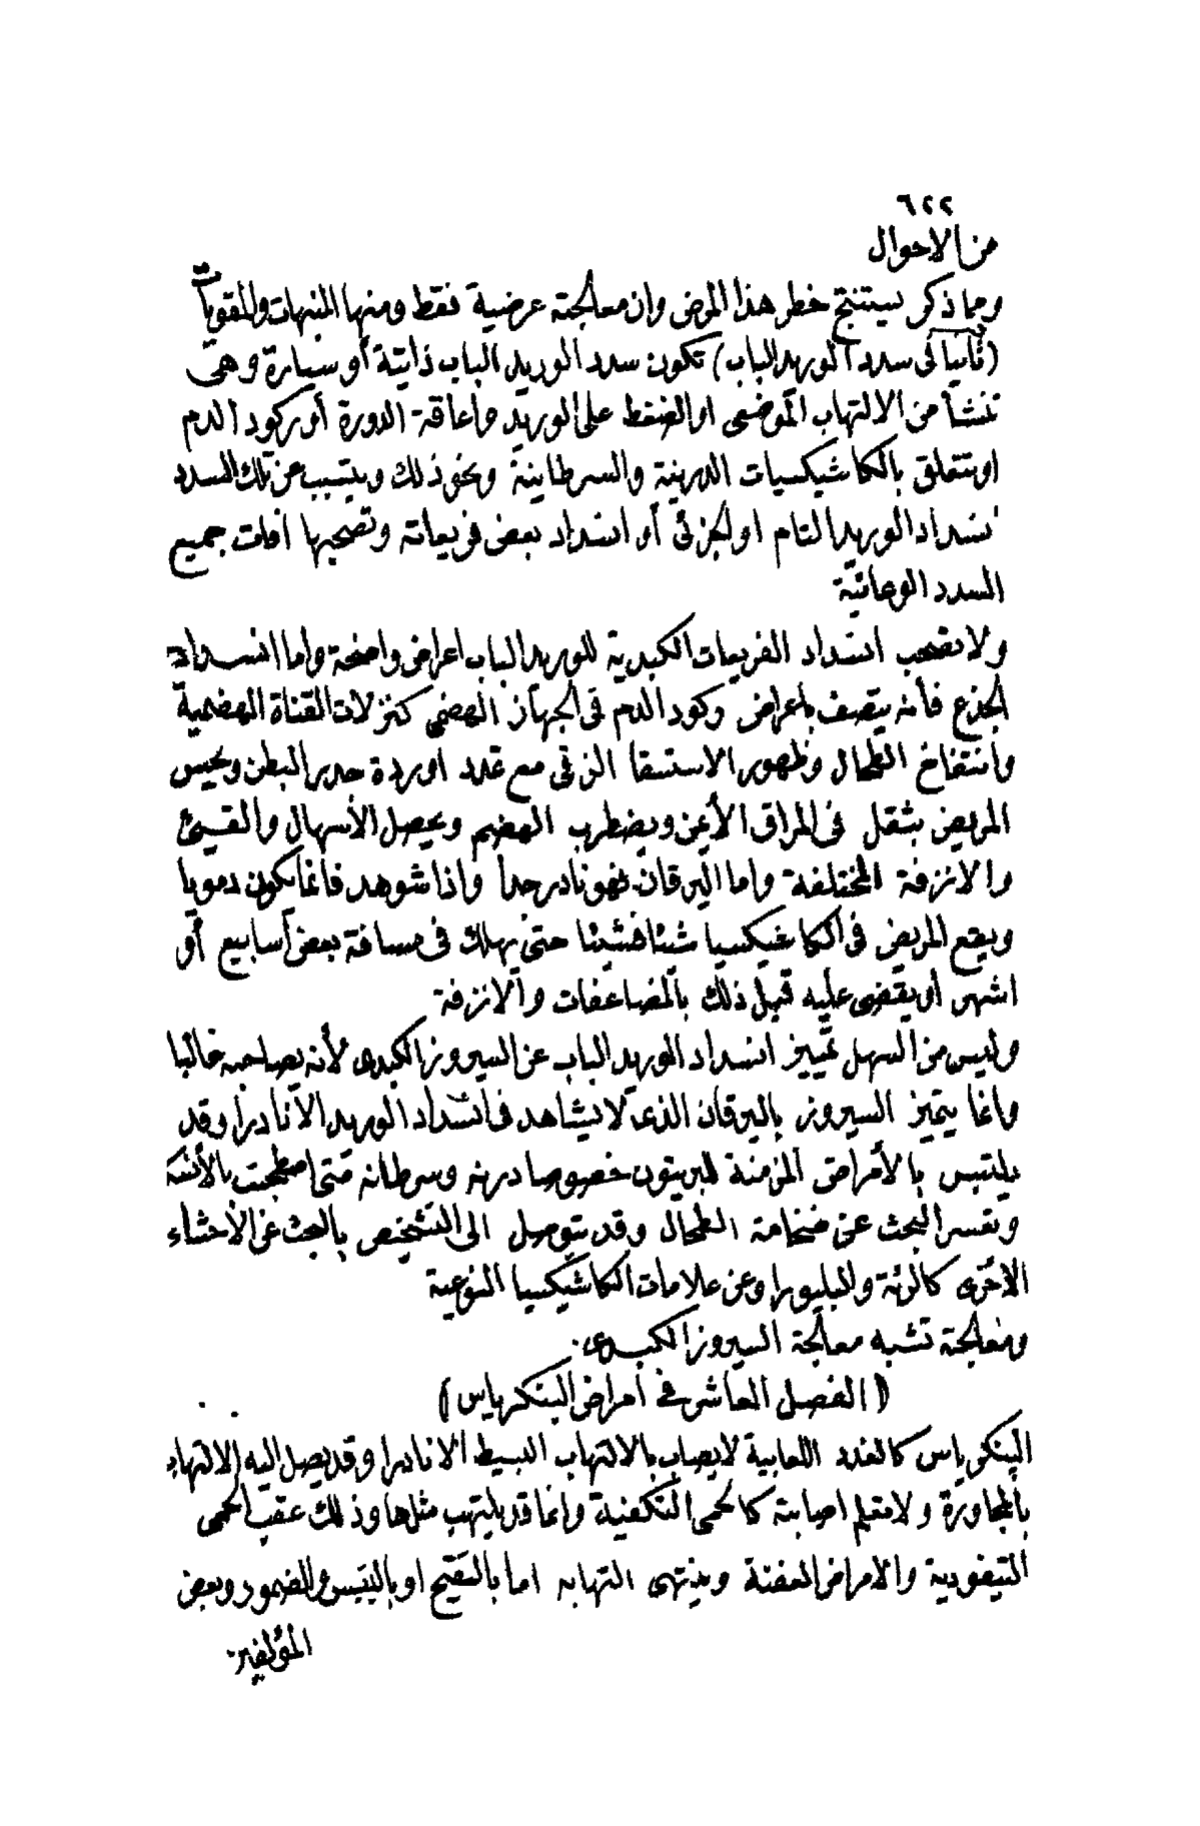 ٦٢٢
من الاحوال
ومما ذكر يستنتج خطر هذا المرض وان معالجته عرضية فقط ومنها المنبهات والمقويات
(ثانيا فى سدد الوريد الباب) تكون سدد الوريد الباب ذاتية أو سيارة وهى
تنشأ من الالتهاب الموضعى او الضغط على الوريد واعاقة الدورة أو ركود الدم
او تتعلق بالكاشيكسيات الدرنية والسرطانية ونحو ذلك ويتسبب عن تلك السدد
انسداد الوريد التام او الجزئى أو انسداد بعض فريعاته وتصحبها افات جميع
السدد الوعائية
ولا تصحب انسداد الفريعات الكبدية للوريد الباب اعراض واضحة واما انسداد
الجذع فأنه يتصف باعراض ركود الدم فى الجهاز الهضمى كنزلات القناة الهضمية
وانتفاخ الطحال وظهور الاستسقا الزقى مع تمدد اوردة جدر البطن ويحس
المريض بثقل فى المراق الأيمن ويضطرب الهضم ويحصل الأسهال والقيئ
والانزفة المختلفة واما اليرقان فهو نادر جدا واذا شوهد فانما يكون دمويا
ويقع المريض فى الكاشيكسيا شيئا فشيئا حتى يهلك فى مسافة بعض أسابيع أو
اشهر أو يقضى عليه قبل ذلك بالمضاعفات والانزفة
وليس من السهل تمييز انسداد الوريد الباب عن السيروز الكبدى لأنه يصاحبه غالبا
وانما يتميز السيروز باليرقان الذى لا يشاهد فى انسداد الوريد الا نادرا وقد
يلتبس بالأمراض المزمنة للبريتون خصوصا درنه وسرطانه متى اصطحبت بالأنسكاب
وتعسر البحث عن ضخامة الطحال وقد يتوصل الى التشخيص بالبحث عن الأحشاء
الأخرى كالرئة والبليورا وعن علامات الكاشيكسيا النوعية
ومعالجته تشبه معالجة السيروز الكبدى.
(الفصل العاشر فى أمراض البنكرياس)
البنكرياس كالغدد اللعابية لا يصاب بالالتهاب البسيط الا نادرا وقد يصل اليه الالتهاب
بالمجاورة ولا تعلم اصابته كالحمى النكفية وانما قد يلتهب مثلها وذلك عقب الحمى
التيفودية والامراض العفنة وينتهى التهابه اما بالتقيح او باليبس والضمور وبعض
المؤلفين